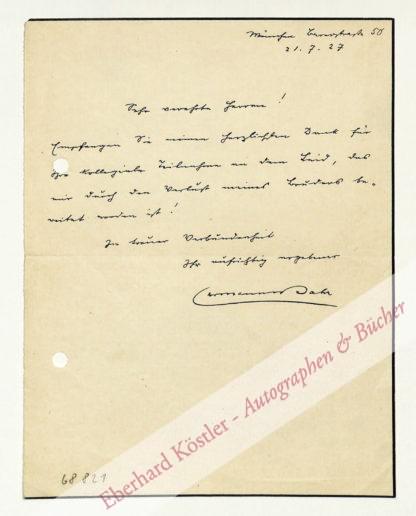 München Barerstrasse 50
21.7.27
Sehr verehrte Herren!
Empfangen Sie meinen herzlichsten Dank für
Ihre kollegiale Teilnahme an dem Leid, das
mir durch den Verlust meines Bruders be-
reitet worden ist!
In treuer Verbundenheit
Ihr aufrichtig ergebener
68 821
Eberhard Köstler - Autographen & Bücher